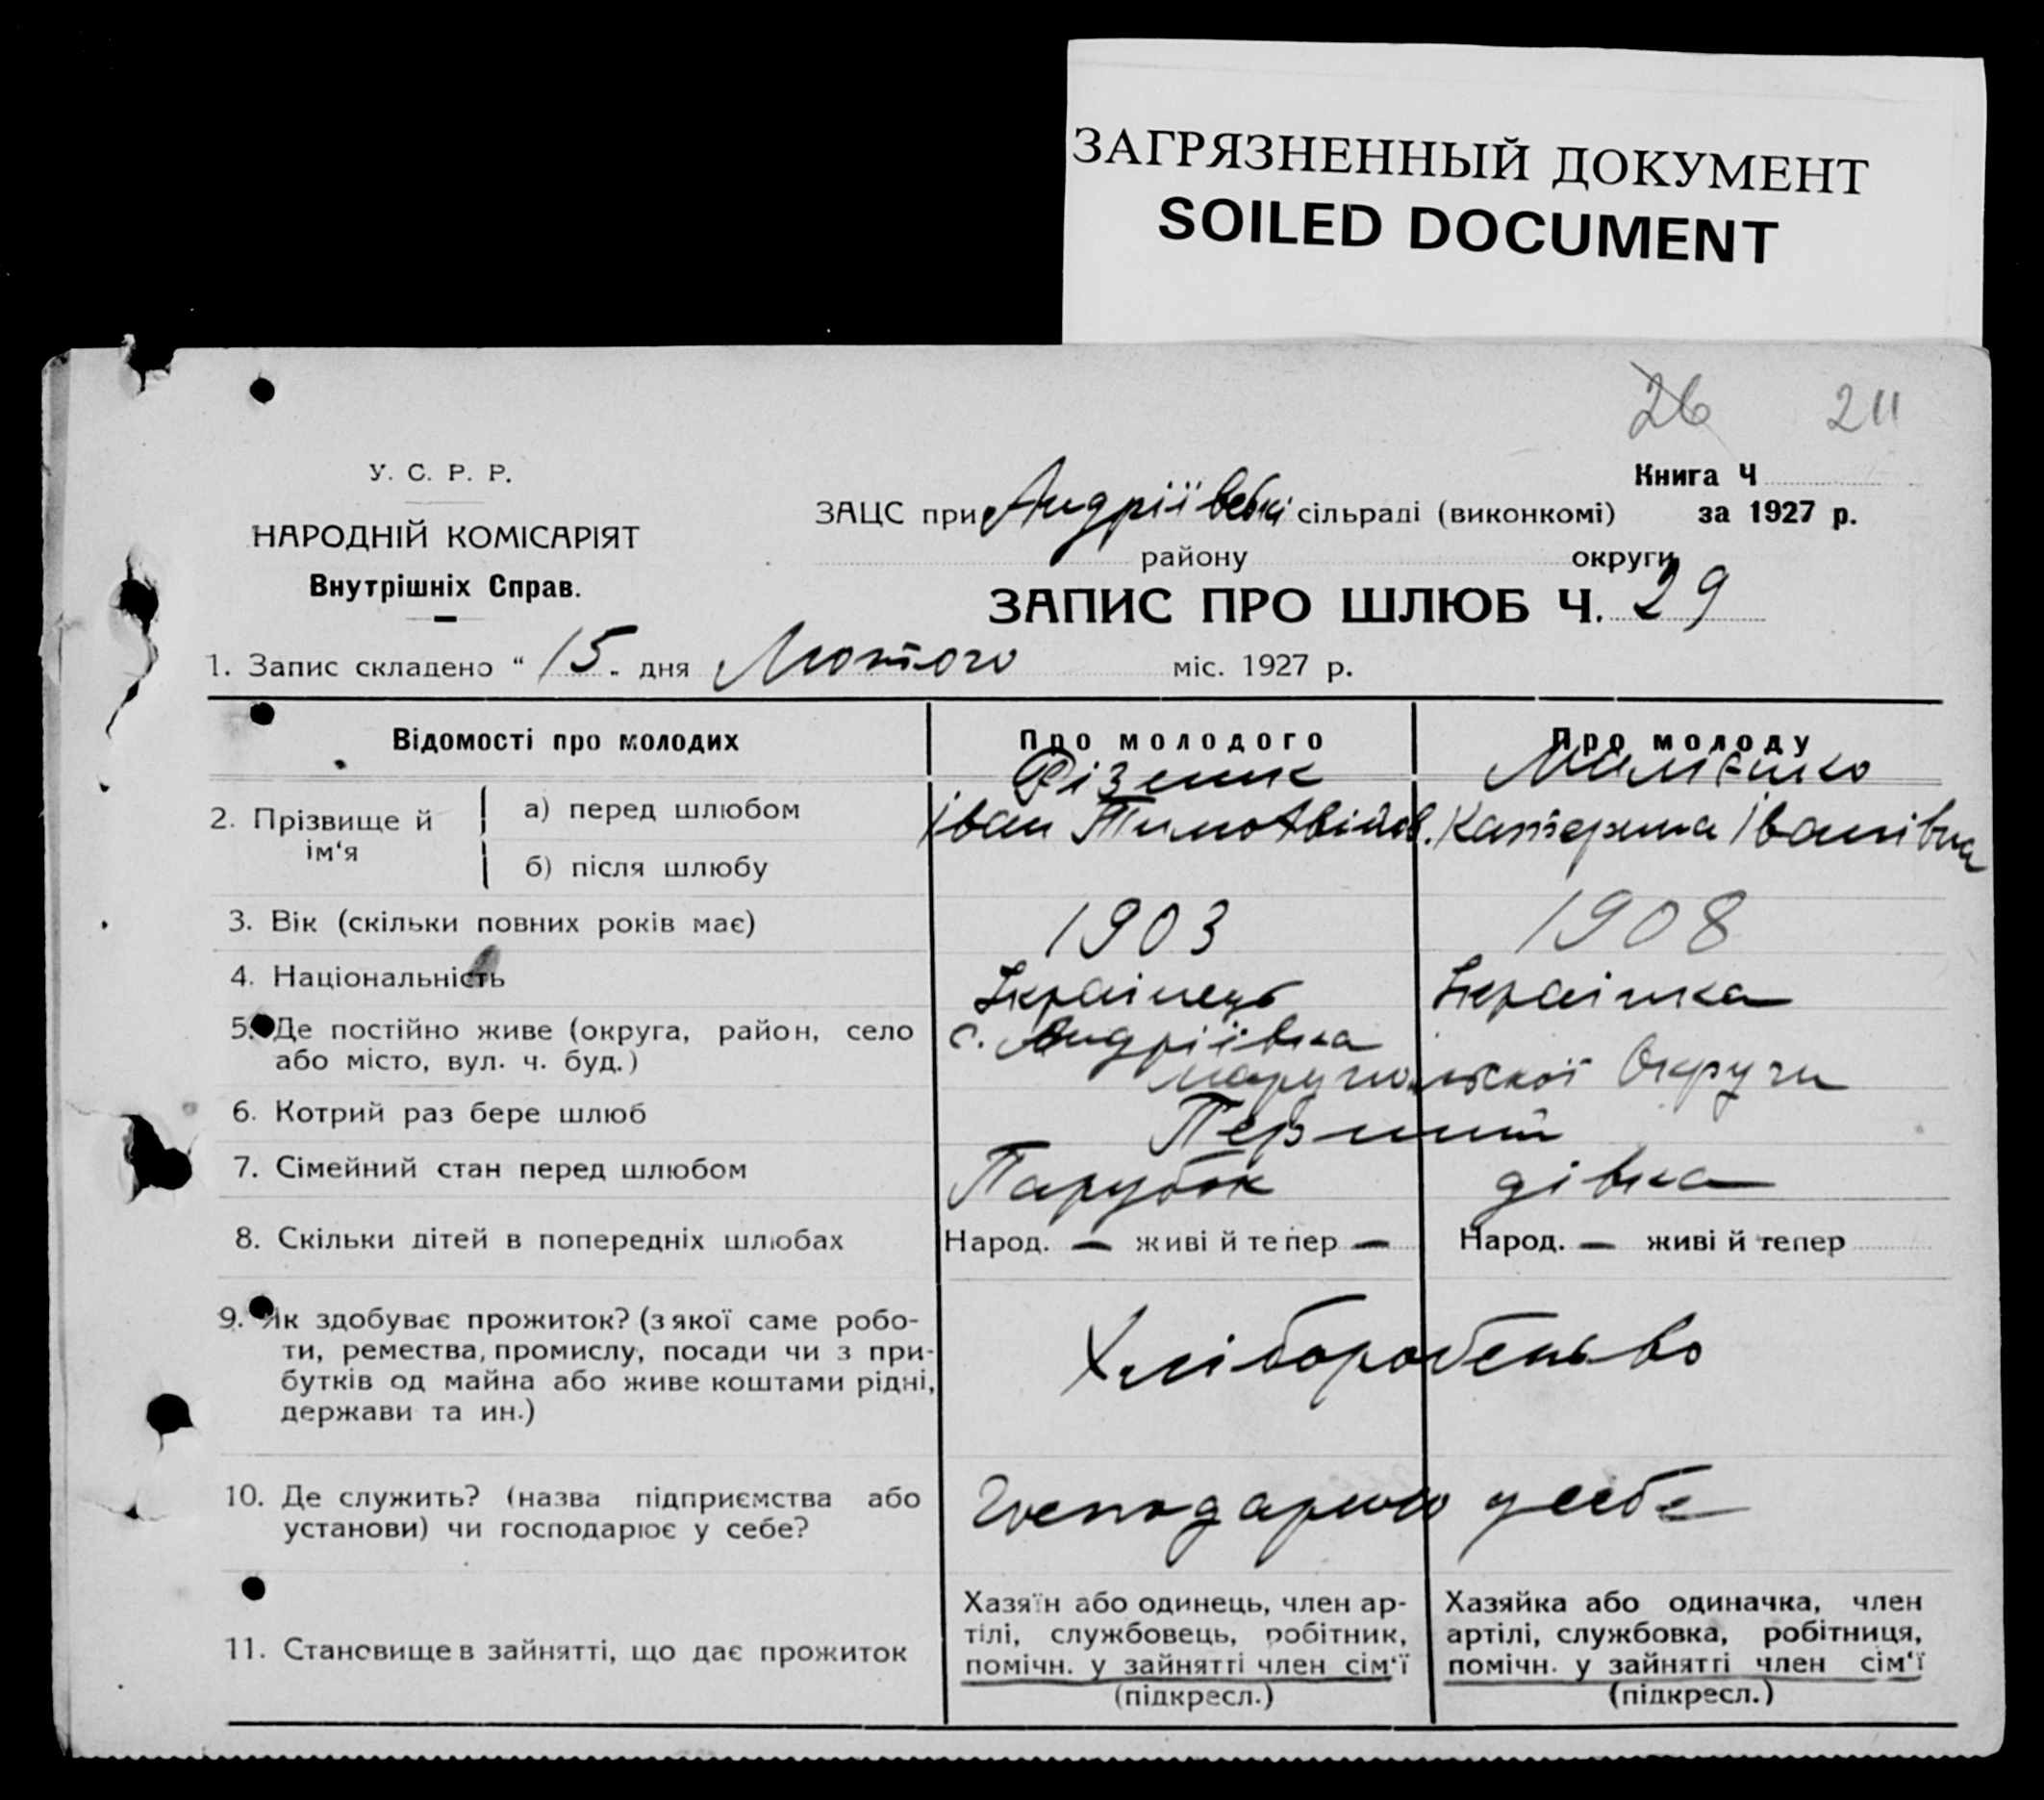 ЗАГРЯЗНЕННЫЙ ДОКУМЕНТ
SOILED DOCUMENT
26 211
У. С. Р. Р.
НАРОДНІЙ КОМІСАРІЯТ
Внутрішніх Справ.
Книга Ч
ЗАЦС при Андріївській сільраді (виконкомі) за 1927 р.
району округи
ЗАПИС ПРО ШЛЮБ Ч. 29
1. Запис складено “ 15 . дня Лютого міс. 1927 р.
Відомості про молодих Про молодого Про молоду
2. Прізвище й ім‘я
а) перед шлюбом
Іван Тимофвійов. Катерина Іванівна
б) після шлюбу
3. Вік (скільки повних років має) 1903 1908
4. Національність Українець Українка
5. Де постійно живе (округа, район, село с. Андріївка
або місто, вул. ч. буд.) Округи
6. Котрий раз бере шлюб Перший
7. Сімейний стан перед шлюбом Парубок дівка
8. Скільки дітей в попередніх шлюбах Народ. — живі й тепер — Народ. — живі й тепер
9. Як здобуває прожиток? (з якої саме робо-
ти, ремества, промислу, посади чи з при-
бутків од майна або живе коштами рідні,
держави та ин.)
Хліборобство
10. Де служить? (назва підприємства або
установи) чи господарює у себе?
Господарюю у себе
11. Становище в зайнятті, що дає прожиток
Хазяїн або одинець, член ар-
тілі, службовець, робітник,
помічн. у зайнятті член сім‘ї
(підкресл.)
Хазяйка або одиначка, член
артілі, службовка, робітниця,
помічн. у зайнятті член сім‘ї
(підкресл.)